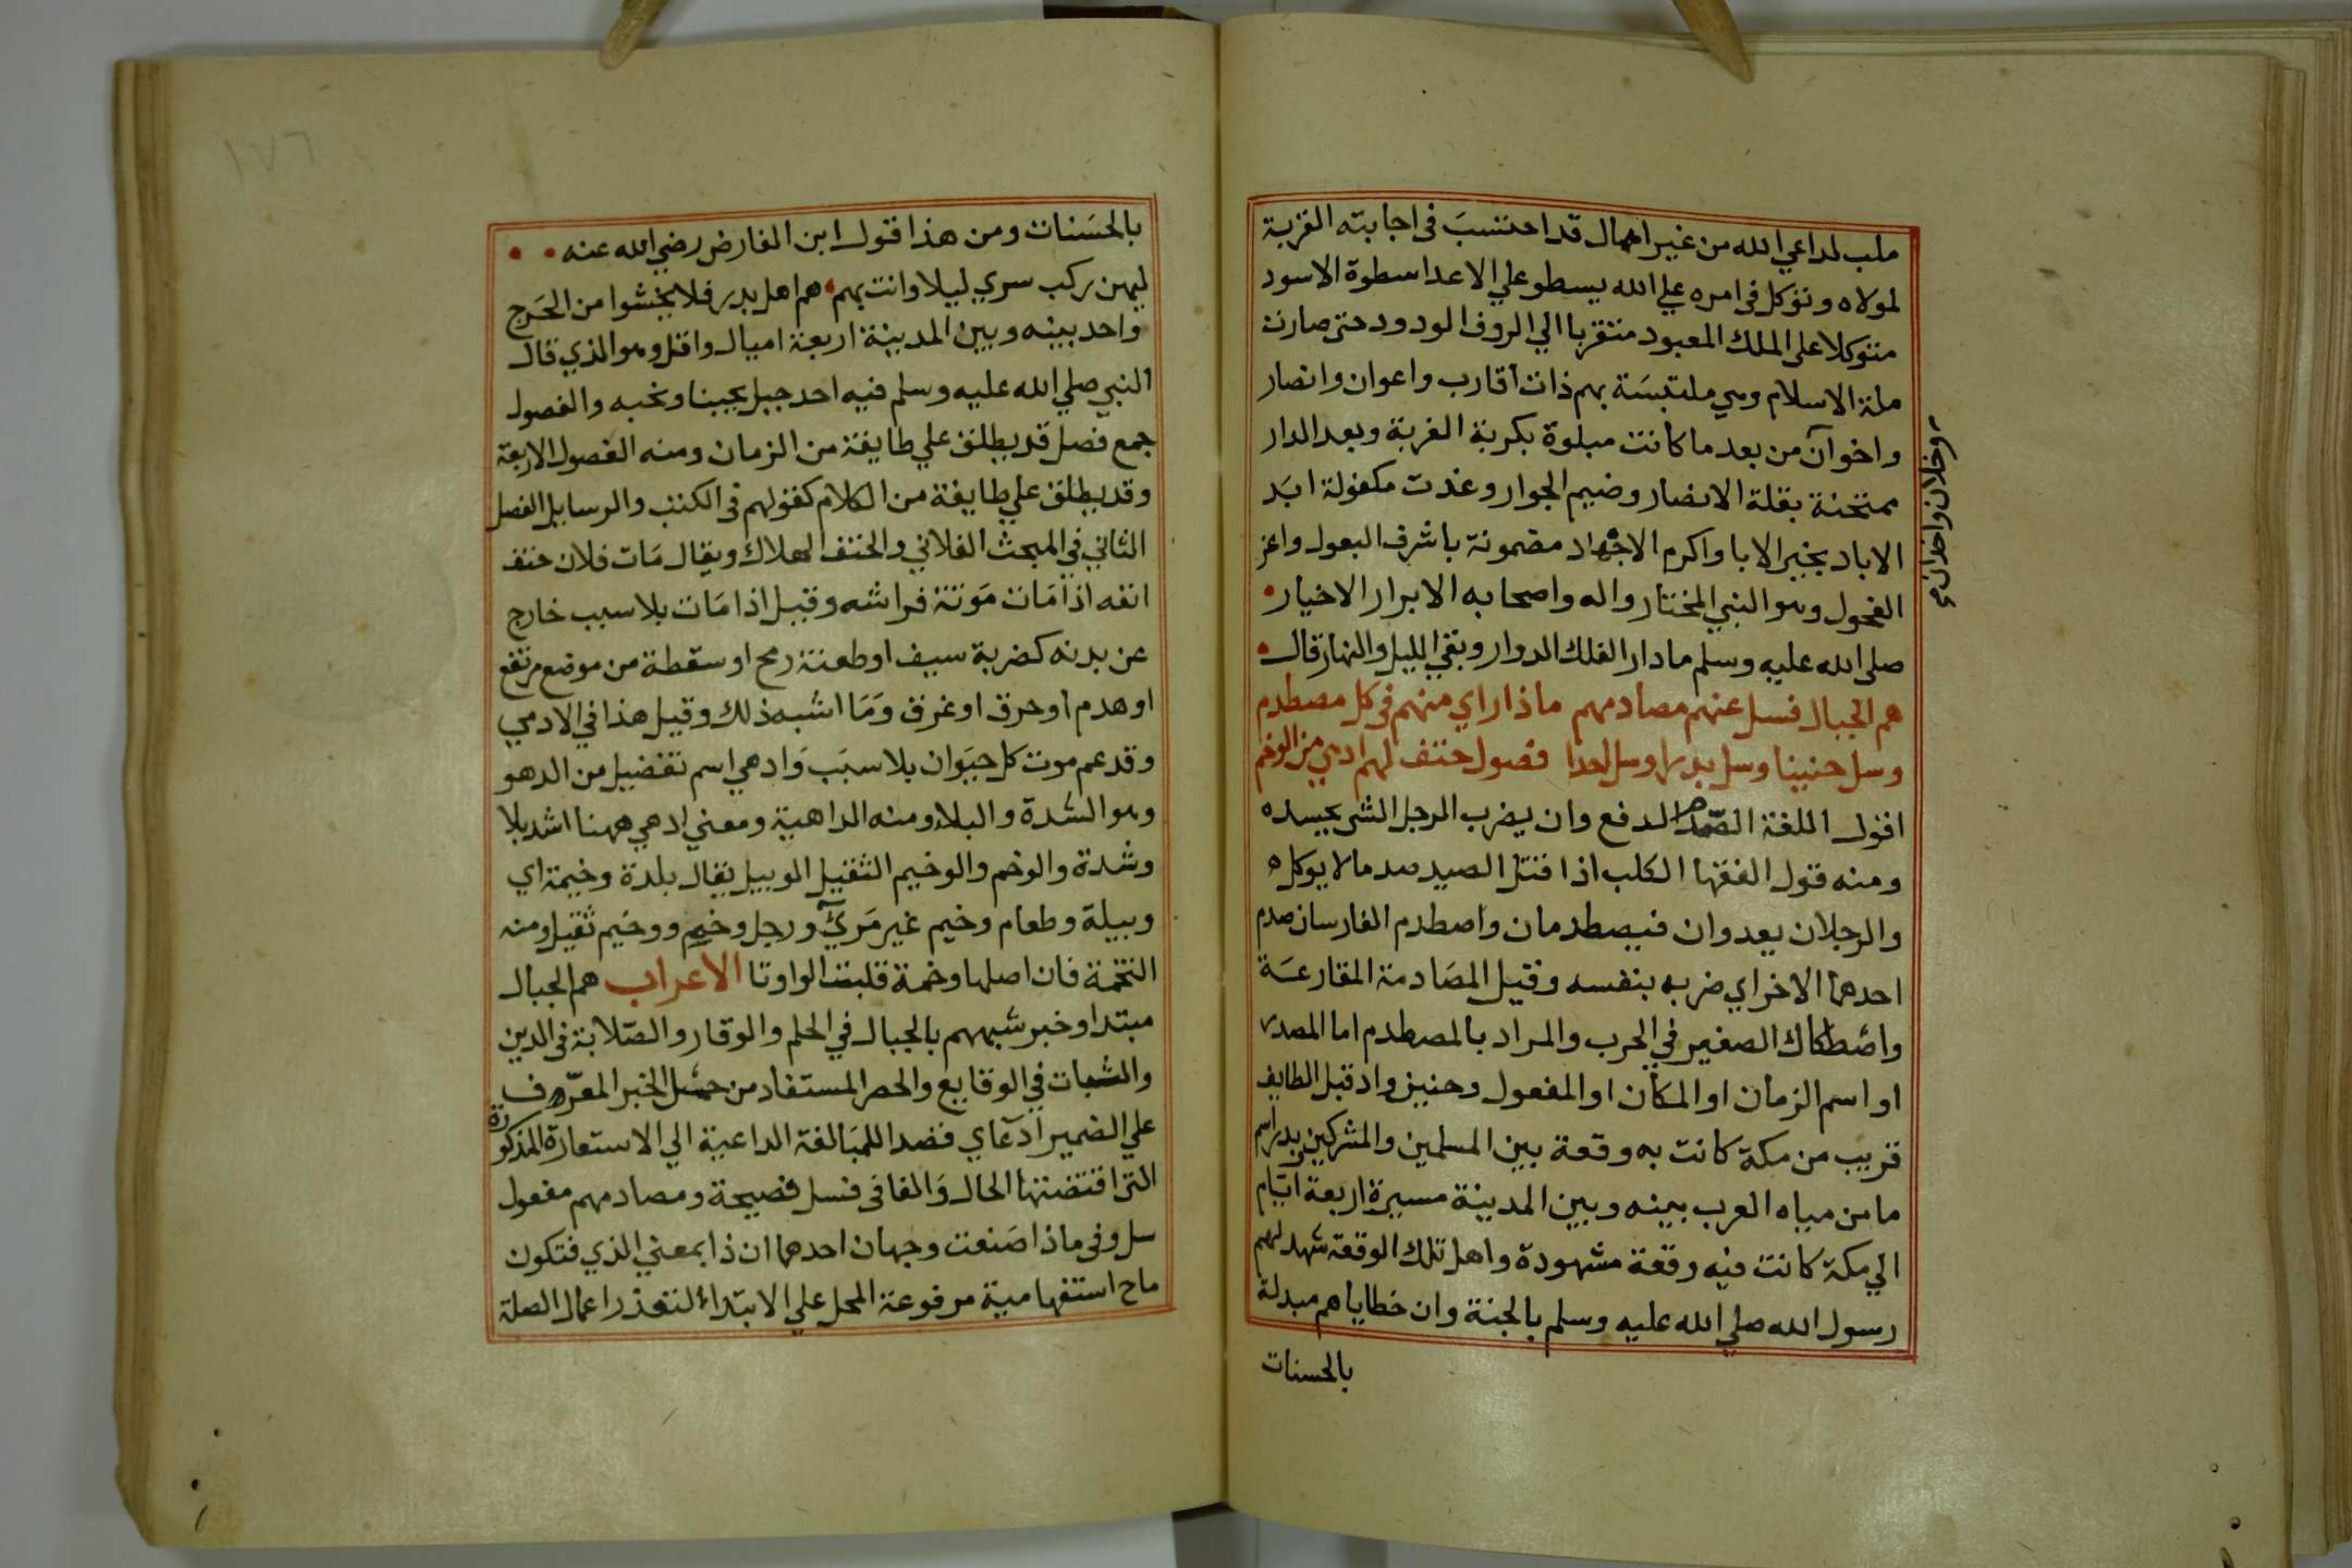 ملب لداعي الله من غير اهمال قد احتسب فى اجابته القربة
لمولاه وتوكل فى امره علي الله يسطو علي الاعدا سطوة الاسود
متوكلا على الملك المعبود متقربا الي الروف الودود حتى صارت
ملة الاسلام وهي ملتبسة بهم ذات اقارب واعوان وانصار
واخوان من بعد ما كانت مبلوة بكربة الغربة وبعد الدار
وخلان واخدان
ممتحنة بقلة الانصار وضيم الجوار وغدت مكفولة ابد
الاباد بخير الابا واكرم الاجهاد مضمونة باشرف البعول واعز
الفحول وهو النبي المختار واله واصحابه الابرار الاخيار
صلى الله عليه وسلم ما دار الفلك الدوار وبقي الليل والنهار قال
هم الجبال فسل عنهم مصادمهم ماذا راي منهم فى كل مصطدم
وسل حنينا وسل بدرا وسل احدا فصول حتف لهم ادهي من الوخم
اقول اللغة الصدم الدفع وان يضرب الرجل الشى بجسده
ومنه قول الفقها الكلب اذا قتل الصيد صدما لا يوكله
والرجلان يعدوان فيصطدمان واصطدم الفارسان صدم
احدهما الاخر اي ضربه بنفسه وقيل المصادمة المقارعة
واصطكاك الصفين في الحرب والمراد بالمصطدم اما المصدر
او اسم الزمان او المكان او المفعول وحنين واد قبل الطايف
قريب من مكة كانت به وقعة بين المسلمين والمشركين بدر اسم
ما من مياه العرب بينه وبين المدينة مسيرة اربعة ايام
الي مكة كانت فيه وقعة مشهودة واهل تلك الوقعة شهد لهم
رسول الله صلي الله عليه وسلم بالجنة وان خطاياهم مبدلة
بالحسنات
١٧٦
بالحسنات ومن هذا قول ابن الفارض رضي الله عنه
ليهن ركب سري ليلا وانت بهم هم اهل بدر فلا يخشوا من الحرج
واحد بينه وبين المدينة اربعة اميال واقل وهو الذي قال
النبي صلي الله عليه وسلم فيه احد جبل يحبنا ونحبه والفصول
جمع فصل قد يطلق علي طايفة من الزمان ومنه الفصول الاربعة
وقد يطلق علي طايفة من الكلام كقولهم فى الكتب والرسايل الفصل
الثاني في المبحث الفلاني والحتف الهلاك ويقال مات فلان حتف
انفه اذا مات موتة فراشه وقيل اذا مات بلا سبب خارج
عن بدنه كضربة سيف او طعنة رمح او سقطة من موضع مرتفع
او هدم او حرق او غرق وما اشبه ذلك وقيل هذا في الادمي
وقد عم موت كل حيوان بلا سبب وادهي اسم تفضيل من الدهو
وهو الشدة والبلا ومنه الداهية ومعني ادهي ههنا اشد بلا
وشدة والوخم والوخيم الثقيل الوبيل يقال بلدة وخيمة اي
وبيلة وطعام وخيم غير مريّ ورجل وخم ووخيم ثقيل ومنه
التخمة فان اصلها وخمة قلبت الواو تا الاعراب هم الجبال
مبتدا وخبر شبههم بالجبال في الحلم والوقار والصلابة فى الدين
والثبات في الوقايع والحصر المستفاد من حمل الخبر المعرف
علي الضمير ادعاي قصدا للمبالغة الداعية الي الاستعارة المذكورة
التى اقتضتها الحال والفا فى فسل فصيحة ومصادمهم مفعول
سل وفى ماذا صنعت وجهان احدهما ان ذا بمعني الذي فتكون
ما ح استفهامية مرفوعة المحل علي الابتداء لتعذر اعمال الصلة